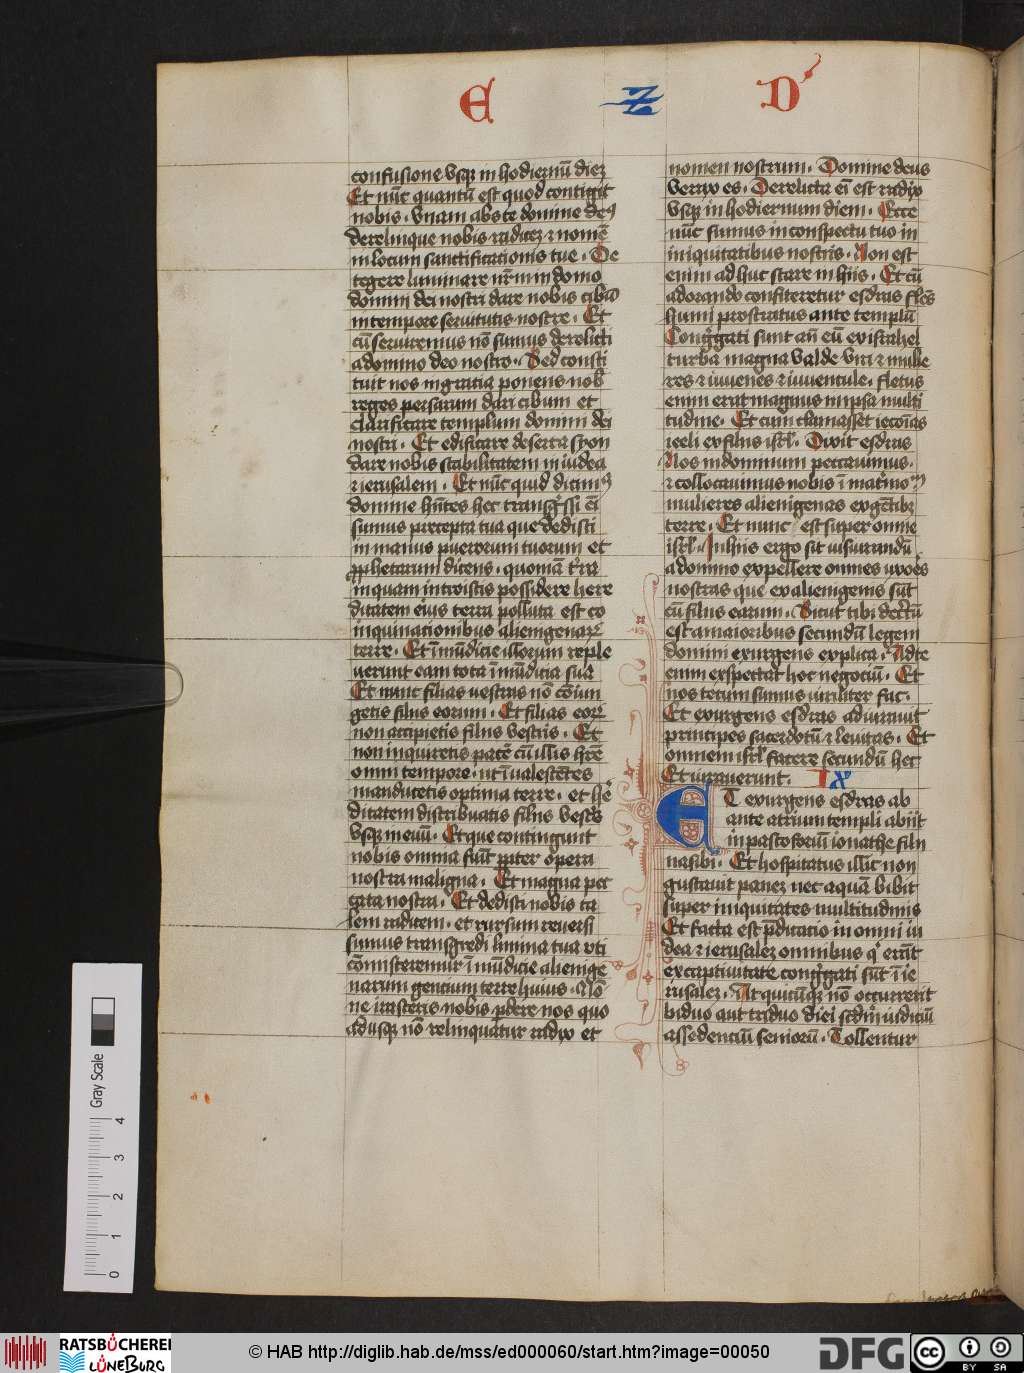 E z D
confusione vsq; in hodiernū diez
Et nūc quantū est quod contigit
nobis. vnam abs te domine de⁹
derelinque nobis radicez ⁊ nomē
in locum sanctificationis tue. De
tegere luminare nr̄m in domo
domini dei nostri dare nobis cibū
in tempore seruitutis nostre. Et
cū seruiremus nō sumus derelicti
a domino deo nostro. Sed consti
tuit nos in gratia ponens nob̄
reges persarum dari cibum et
clarificare templum domini dei
nostri. Et edificare deserta syon
dare nobis stabilitatem in iudea
⁊ ierusalem. Et nūc quid dicim⁹
domine hn̄tes hec transg̃ssi eī
sumus precepta tua que dedisti
in manus puerorum tuorum et
ꝓphetarum dicens. quoniā t̃ra
in quam introistis possidere here
ditatem eius terra polluta est co
inquinationibus alienigenarꝝ
terre. Et īmūdicie illorum reple
uerunt eam tota īmūdicia sua
Et nunc filias vestras nō cōiun
getis filiis eorum. Et filias eorꝝ
non accipietis filiis vestris. Et
non inquiretis pacē cū illis hr̄e
omni tempore. ut īualescētes
manducetis optima terre. et he
ditatem distribuatis filiis vest̃s
vsq; in euū. Et que contingunt
nobis omnia fiūt ꝓpter opera
nostra maligna. Et magna pec
cata nostra. Et dedisti nobis ta
lem radicem. et rursum reuersi
sumus transgredi limina tua vti
cōmisceremur ī mūdicie alienige
narum gentium terre huius. Nō
ne irasceris nobis ꝑdere nos quo
adusq; nō relinquatur radix et
nomen nostrum. Domine deus
verax es. Derelicta eī est radix
vsq; in hodiernum diem. Ecce
nūc sumus in conspectu tuo in
iniquitatibus nostris. Non est
enim ad huc stare in hiis. Et cū
adorando confiteretur esdras flēs
humi prostratus ante templū
Cong̃gati sunt an̄ eū ex israhel
turba magna valde viri ⁊ mulie
res ⁊ iuuenes ⁊ iuuentule. fletus
enim erat magnus in ipsa multi
tudine. Et cum clamasset iecōias
ieeli ex filiis isrl̄. Dixit esdras
Nos in dominum peccauimus.
⁊ collocauimus nobis ī matr̄imo
mulieres alienigenas ex gētib;
terre. Et nunc est super omne
isrl̄. In hiis ergo sit iusiurandū
a domino expellere omnes vxoēs
nostras que ex alienigenis sūt
cū filiis earum. Sicut tibi decr̄tū
est a maioribus secundū legem
domini exurgens explica. Ad te
enim exspectat hoc negociū. Et
nos tecum sumus viriliter fac.
Et exurgens esdras adiurauit
principes sacerdotū ⁊ leuitas. Et
omnem isrl̄ facere secundū hec
Et iurauerunt. Ix
ET exurgens esdras ab
ante atrium templi abiit
in pastoforiū ionathe filii
nasibi. Et hospitatus illic non
gustauit panez nec aquā bibit
super iniquitates multitudinis
Et facta est p̄dicatio in omni iu
dea ⁊ ierusalez omnibus q̇ erāt
ex captiuitate cong̃gati sūt ī ie
rusalez. At quicūq; nō occurrerit
biduo aut triduo diei scdm̄ iudiciū
assedenciū seniorū. Tollentur
Gray Scale
4
3
2
1
0
RATSBÜCHEREI
LÜNEBURG
© HAB http://diglib.hab.de/mss/ed000060/start.htm?image=00050
DFG
cc BY SA